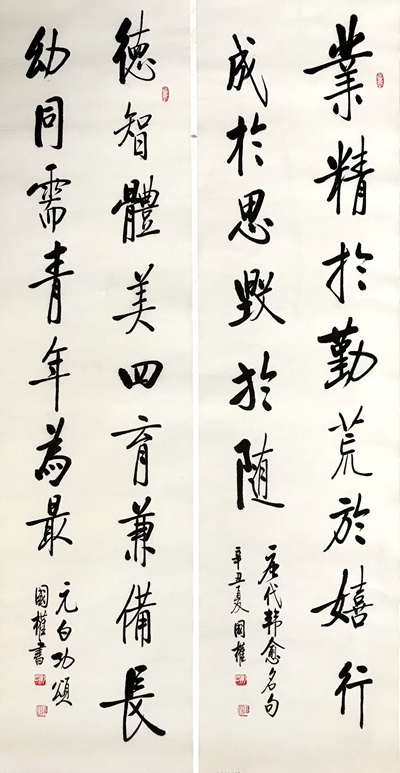 業精於勤荒於嬉行
成於思毀於随
唐代韩愈名句
辛丑夏國權
德智體美四育兼備長
幼同需青年為最
元白功頌
國權書